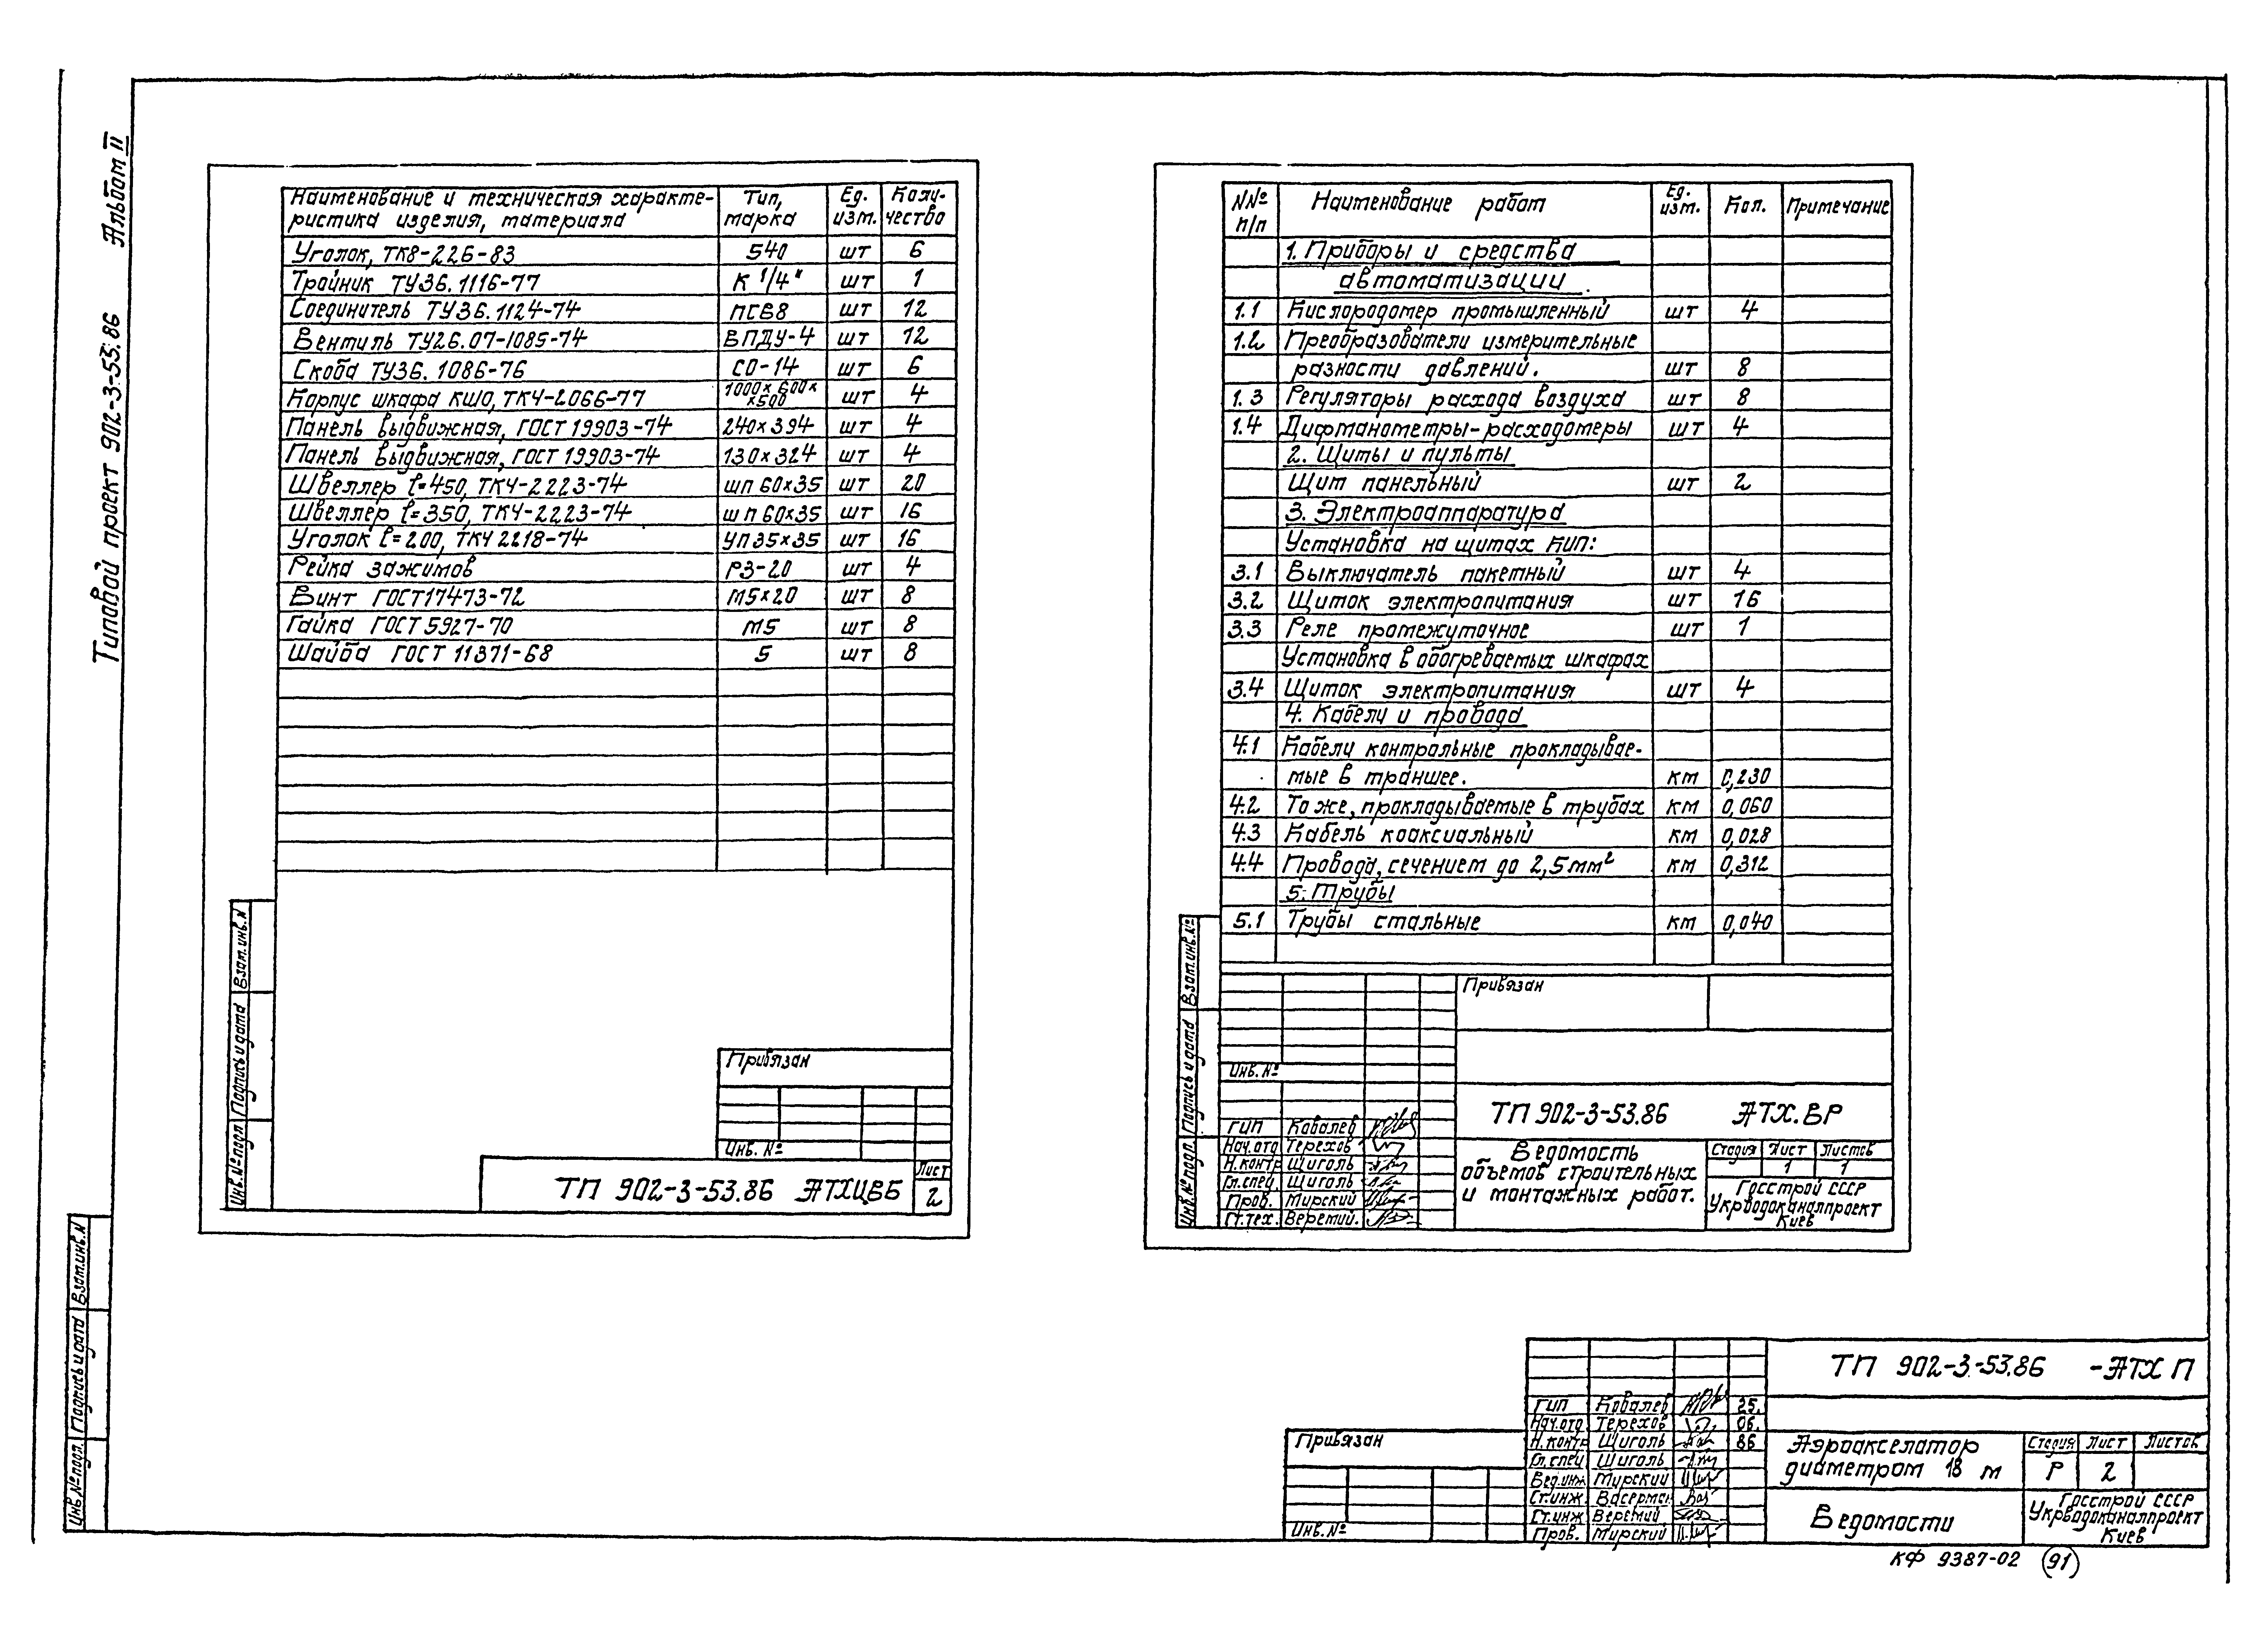 Типовой проект 902-3-53.86 Альбом II
Наименование и техническая характе-
ристика изделия, материала
Тип,
марка
Ед.
изм.
Коли-
чество
Уголок, ТК8-226-83 540 шт 6
Тройник ТУ36.1116-77 К 1/4" шт 1
Соединитель ТУ36.1124-74 ПСВ8 шт 12
Вентиль ТУ26.07-1085-74 ВПДУ-4 шт 12
Скоба ТУ36.1086-76 СО-14 шт 6
Корпус шкафа КШО, ТК4-2066-77 1000×600××500 шт 4
Панель выдвижная, ГОСТ 19903-74 240×394 шт 4
Панель выдвижная, ГОСТ 19903-74 130×324 шт 4
Швеллер ℓ=450, ТК4-2223-74 шп 60×35 шт 20
Швеллер ℓ=350, ТК4-2223-74 шп 60×35 шт 16
Уголок ℓ=200, ТК4 2218-74 УП35×35 шт 16
Рейка зажимов РЗ-20 шт 4
Винт ГОСТ17473-72 М5×20 шт 8
Гайка ГОСТ 5927-70 М5 шт 8
Шайба ГОСТ 11371-68 5 шт 8
Привязан
Инв. №
ТП 902-3-53.86 АТХЦВБ
Лист
2
Инв.№подл Подпись и дата Взам.инв.N
N№
п/п
Наименование работ
Ед.
изм.
Кол.
Примечание
1. Приборы и средства
автоматизации.
1.1 Кислородомер промышленный шт 4
1.2 Преобразователи измерительные
разности давлений. шт 8
1.3 Регуляторы расхода воздуха шт 8
1.4 Дифманометры-расходомеры шт 4
2. Щиты и пульты
Щит панельный шт 2
3. Электроаппаратура
Установка на щитах КИП:
3.1 Выключатель пакетный шт 4
3.2 Щиток электропитания шт 16
3.3 Реле промежуточное шт 1
Установка в обогреваемых шкафах
3.4 Щиток электропитания шт 4
4. Кабели и провода
4.1 Кабели контрольные прокладывае-
мые в траншее. км 0,230
4.2 То же, прокладываемые в трубах км 0,060
4.3 Кабель коаксиальный км 0,028
4.4 Провода, сечением до 2,5мм² км 0,312
5. Трубы
5.1 Трубы стальные км 0,040
Привязан
Инв. №
ТП 902-3-53.86 АТХ.ВР
ГИП Ковалев
Нач.отд Терехов
Н.контр Щиголь
Гл.спец. Щиголь
Пров. Мирский
Ст.тех. Веремий.
Ведомость
объемов строительных
и монтажных работ.
Стадия Лист Листов
1 1
Госстрой СССР
Укрводоканалпроект
Киев
Инв.№подл. Подпись и дата Взам.инв.№
Привязан
Инв.№
ТП 902-3-53.86 -АТХ П
ГИП Ковалев 25.
Нач.отд Терехов 06.
Н.контр Щиголь 86
Гл.спец Щиголь
Вед.инж Мирский
Ст.инж Васерман
Ст.инж Веремий
Пров. Мирский
Аэроакселатор
диаметром 18 м
Стадия Лист Листов
Р 2
Ведомости
Госстрой СССР
Укрводоканалпроект
Киев
Инв.№подл. Подпись и дата Взам.инв.N
КФ 9387-02 (91)